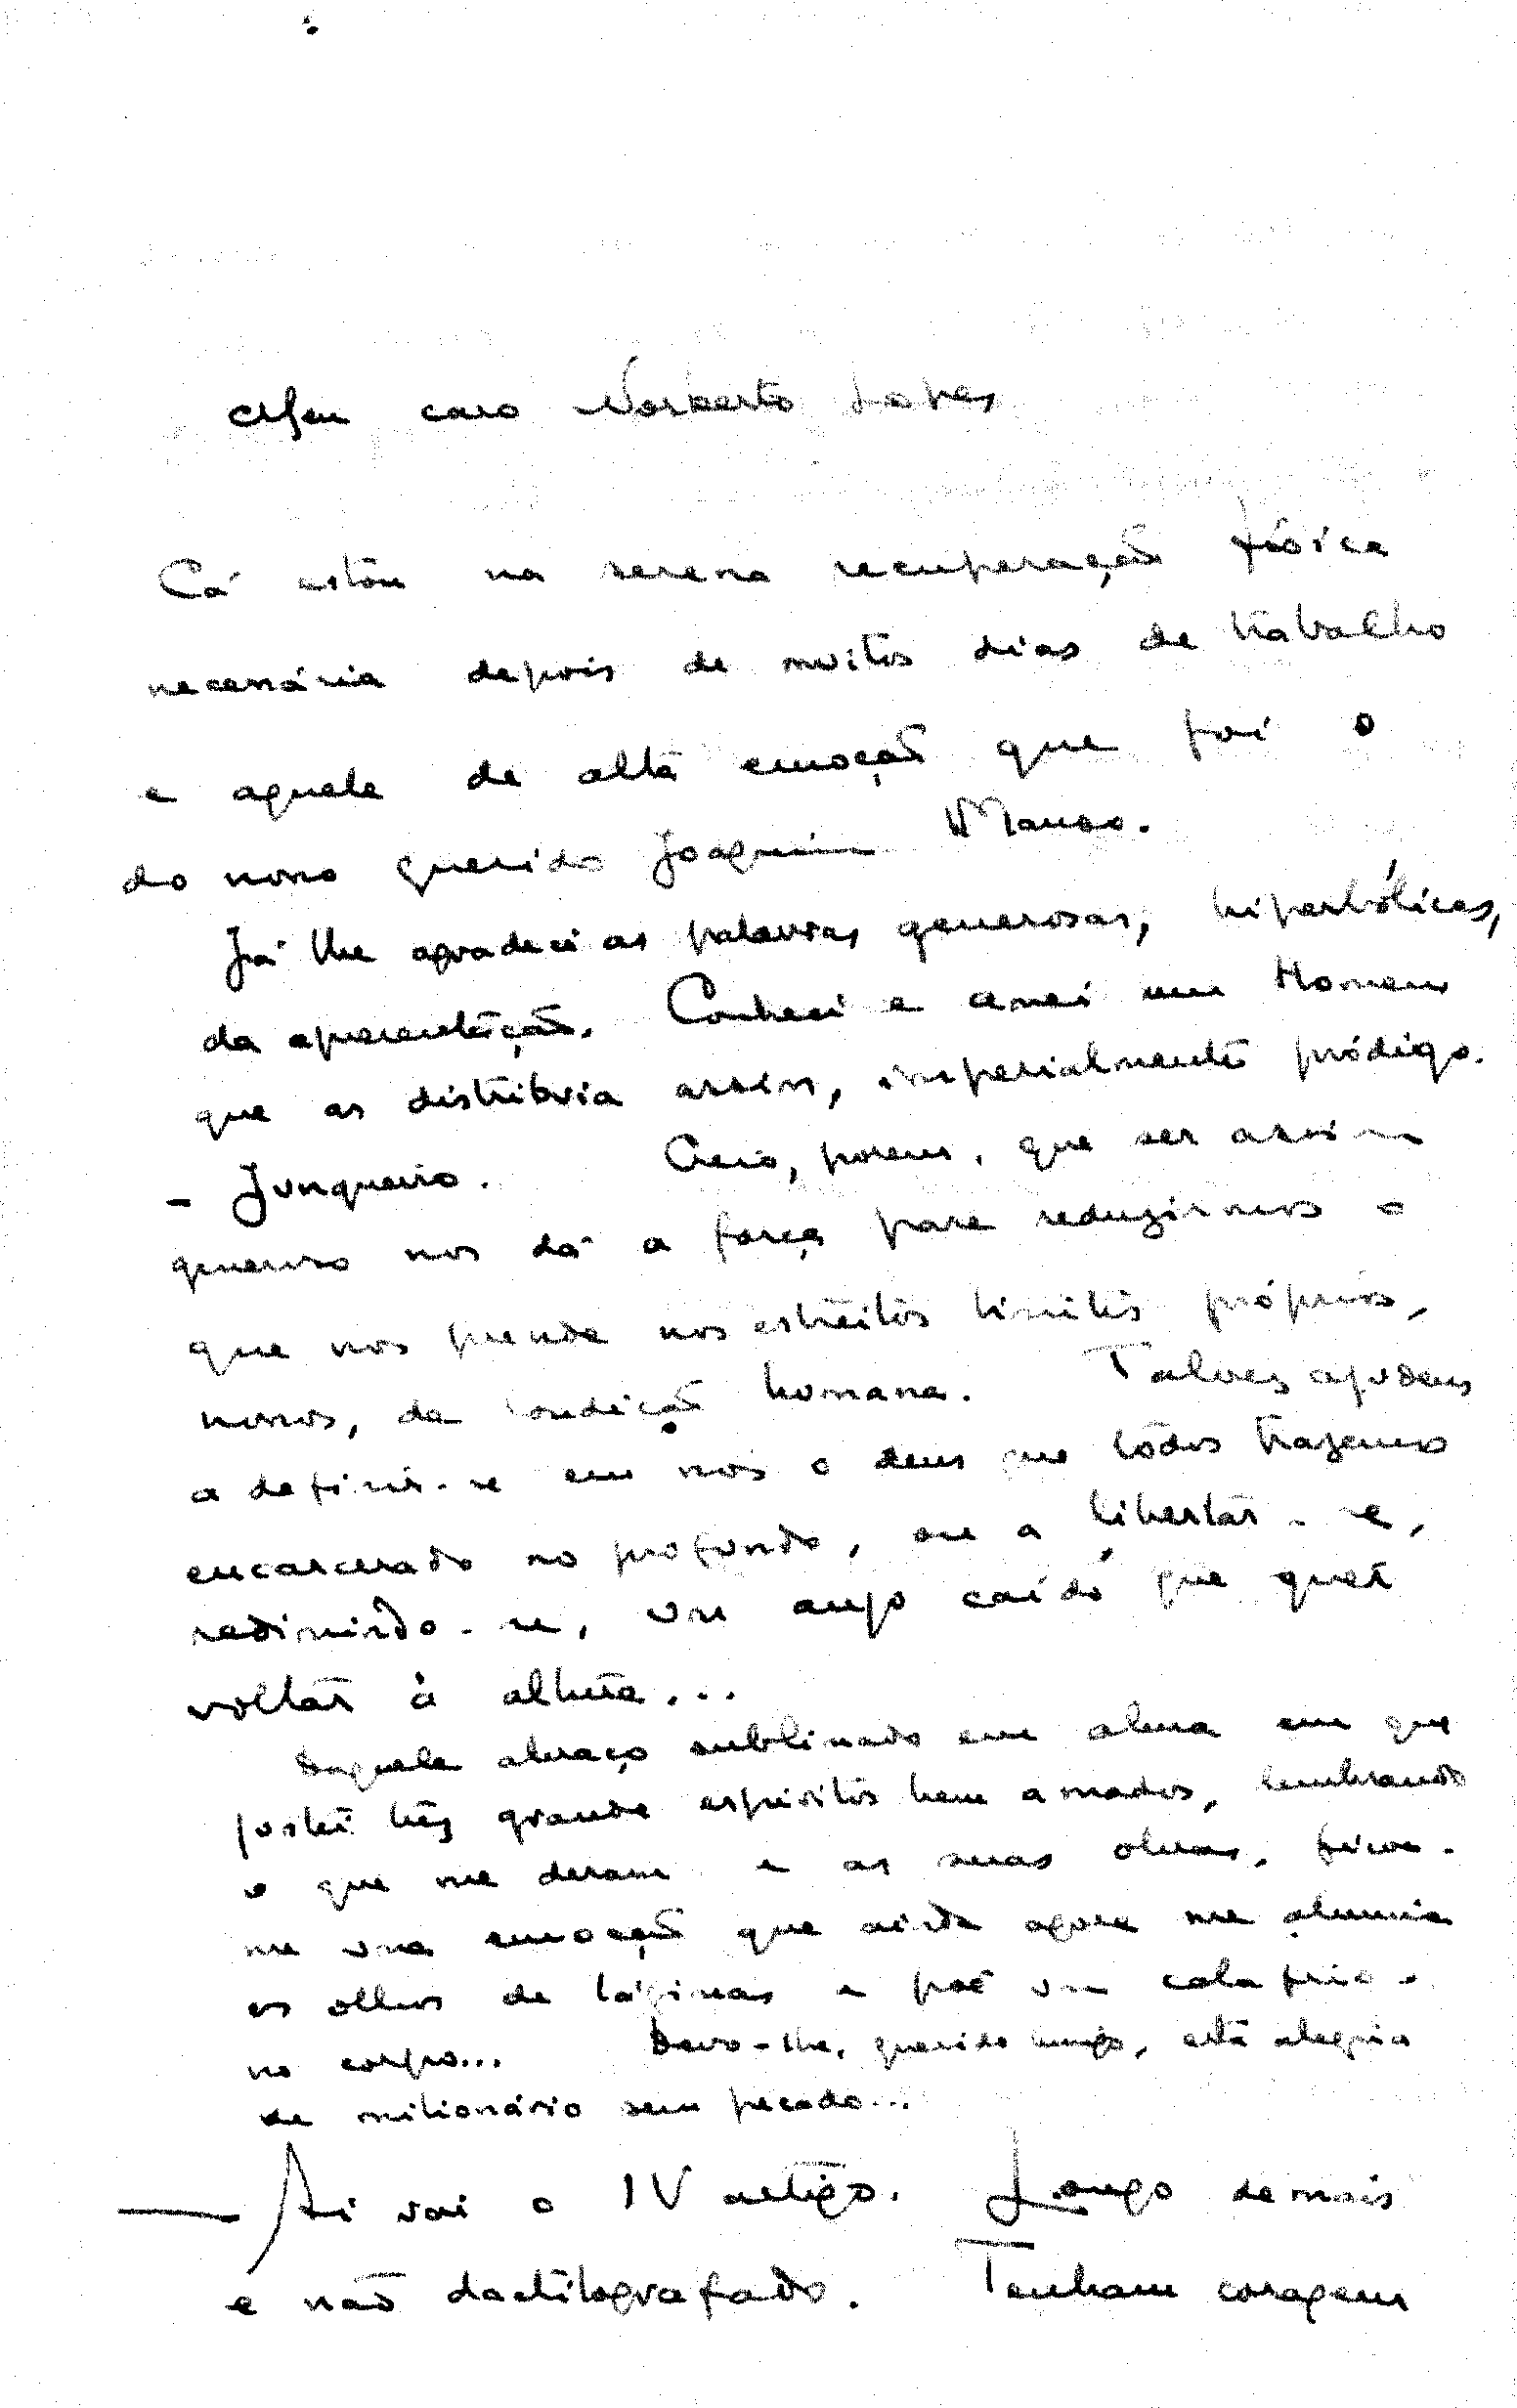 Meu caro Norberto Lopes
Cá estou na serena recuperação física
necessária depois de muitos dias de trabalho
e aquele de alta emoção que foi o
do nosso querido Joaquim Manso.
Já lhe agradeci as palavras generosas, hiperbólicas,
da apresentação. Conheci e amei um Homem
que as distribuia assim, imperialmente pródigo.
- Junqueiro. Creio, porem, que ser assim
generoso nos dá a força para reduzirmos o
que nos prende nos estreitos limites próprios,
nossos, da condição humana. Talvez ajudem
a definir-se em nós o deus que todos trazemos
encarcerado no profundo, ou a libertar-se,
redimindo-se, um anjo caído que quer
voltar à altura...
Daquele abraço sublimado em alma em que
juntei três grandes espíritos bem amados, lembrando
o que me deram e as suas obras, ficou-
me uma emoção que ainda agora me alumia
os olhos de lágrimas e põe um calafrio
no corpo... Devo-lhe, querido amigo, esta alegria
de milionário sem pecado...
— Aí vai o IV artigo. Longo demais
e não dactilografado. Tenham coragem